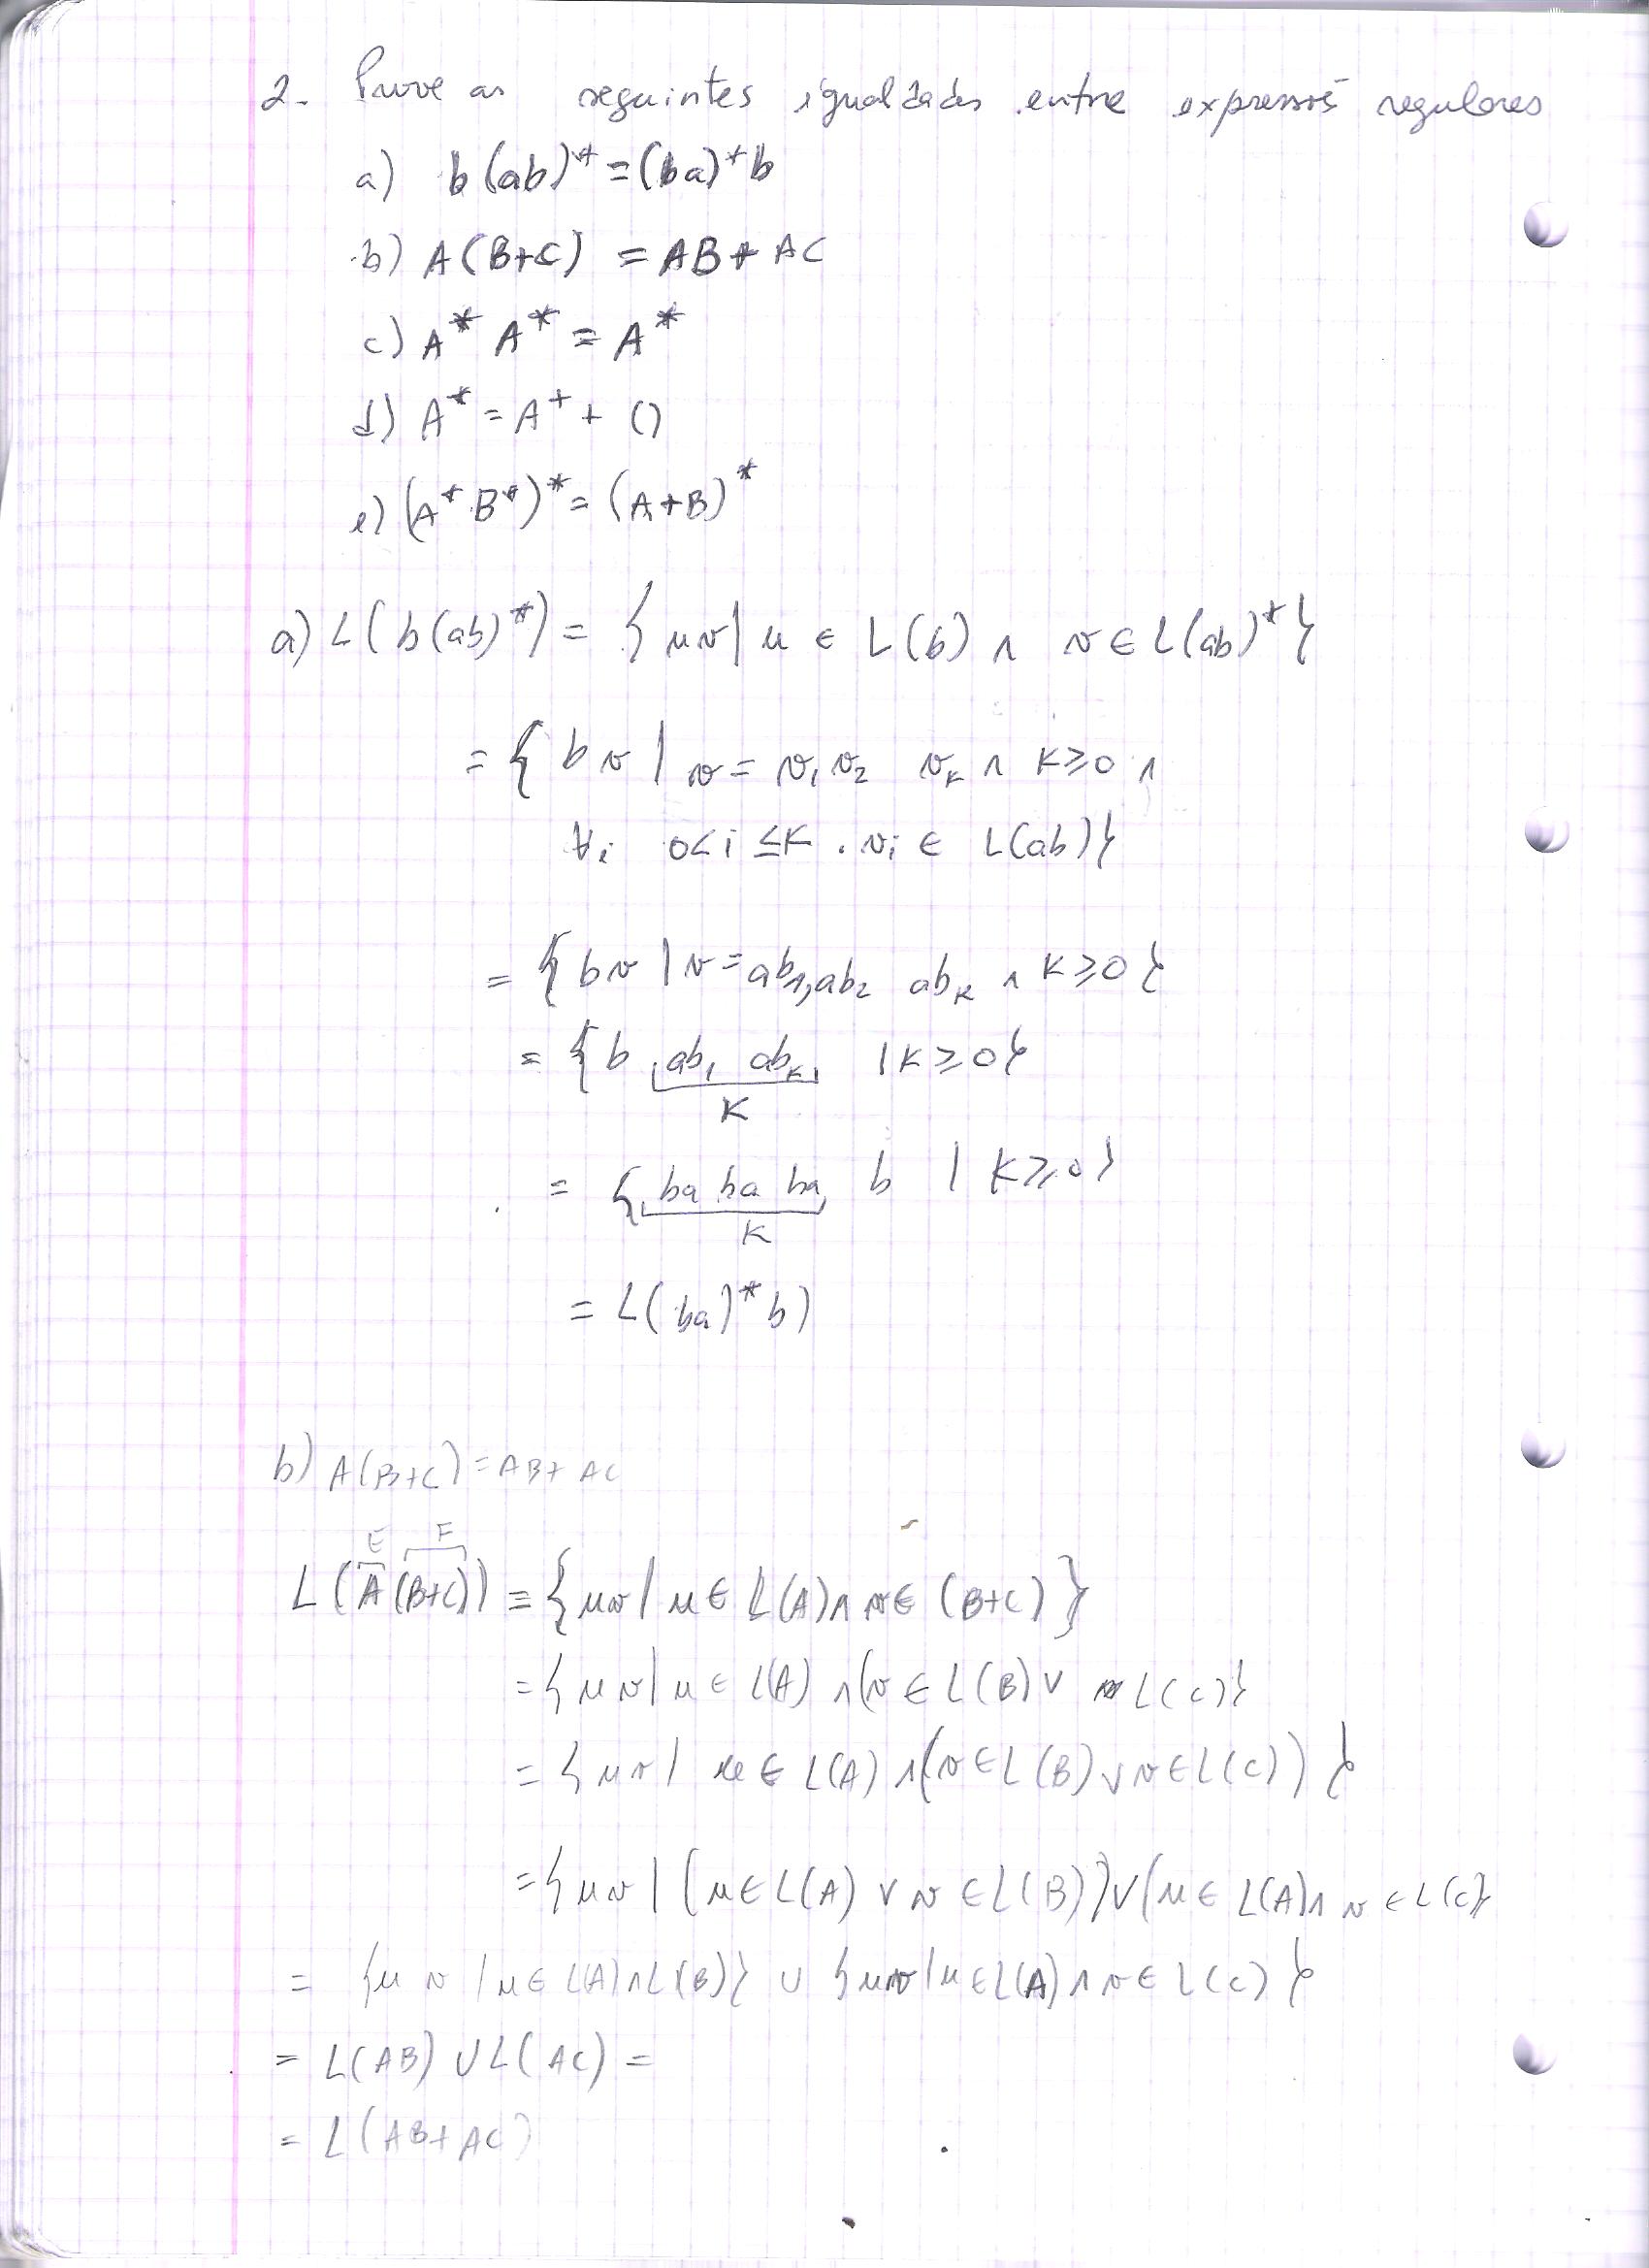 2- Prove as seguintes igualdades entre expressões regulares
a) b(ab)* = (ba)*b
b) A(B+C) = AB + AC
c) A* A* = A*
d) A* = A⁺ + ()
e) (A* B*)* = (A+B)*
a) L(b(ab)*) = {uv | u ∈ L(b) ∧ v ∈ L(ab)*}
= {bv | v = v₁ v₂ vₖ ∧ K ≥ 0 ∧
∀i 0 < i ≤ K . vᵢ ∈ L(ab)}
= {bv | v = ab₁, ab₂ abₖ ∧ K ≥ 0}
= {b ab₁ abₖ | K ≥ 0}
K
= {ba ba ba b | K ≥ 0}
K
= L(ba)* b)
b) A(B+C) = AB + AC
E F
L(A(B+C)) = {uv | u ∈ L(A) ∧ v ∈ (B+C)}
= {uv | u ∈ L(A) ∧ (v ∈ L(B) ∨ L(C)}
= {uv | u ∈ L(A) ∧ (v ∈ L(B) ∨ v ∈ L(C))}
= {uv | (u ∈ L(A) ∨ v ∈ L(B)) ∨ (u ∈ L(A) ∧ v ∈ L(C)}
= {u v | u ∈ L(A) ∧ L(B)} ∪ {uv | u ∈ L(A) ∧ v ∈ L(C)}
= L(AB) ∪ L(AC) =
= L(AB + AC)